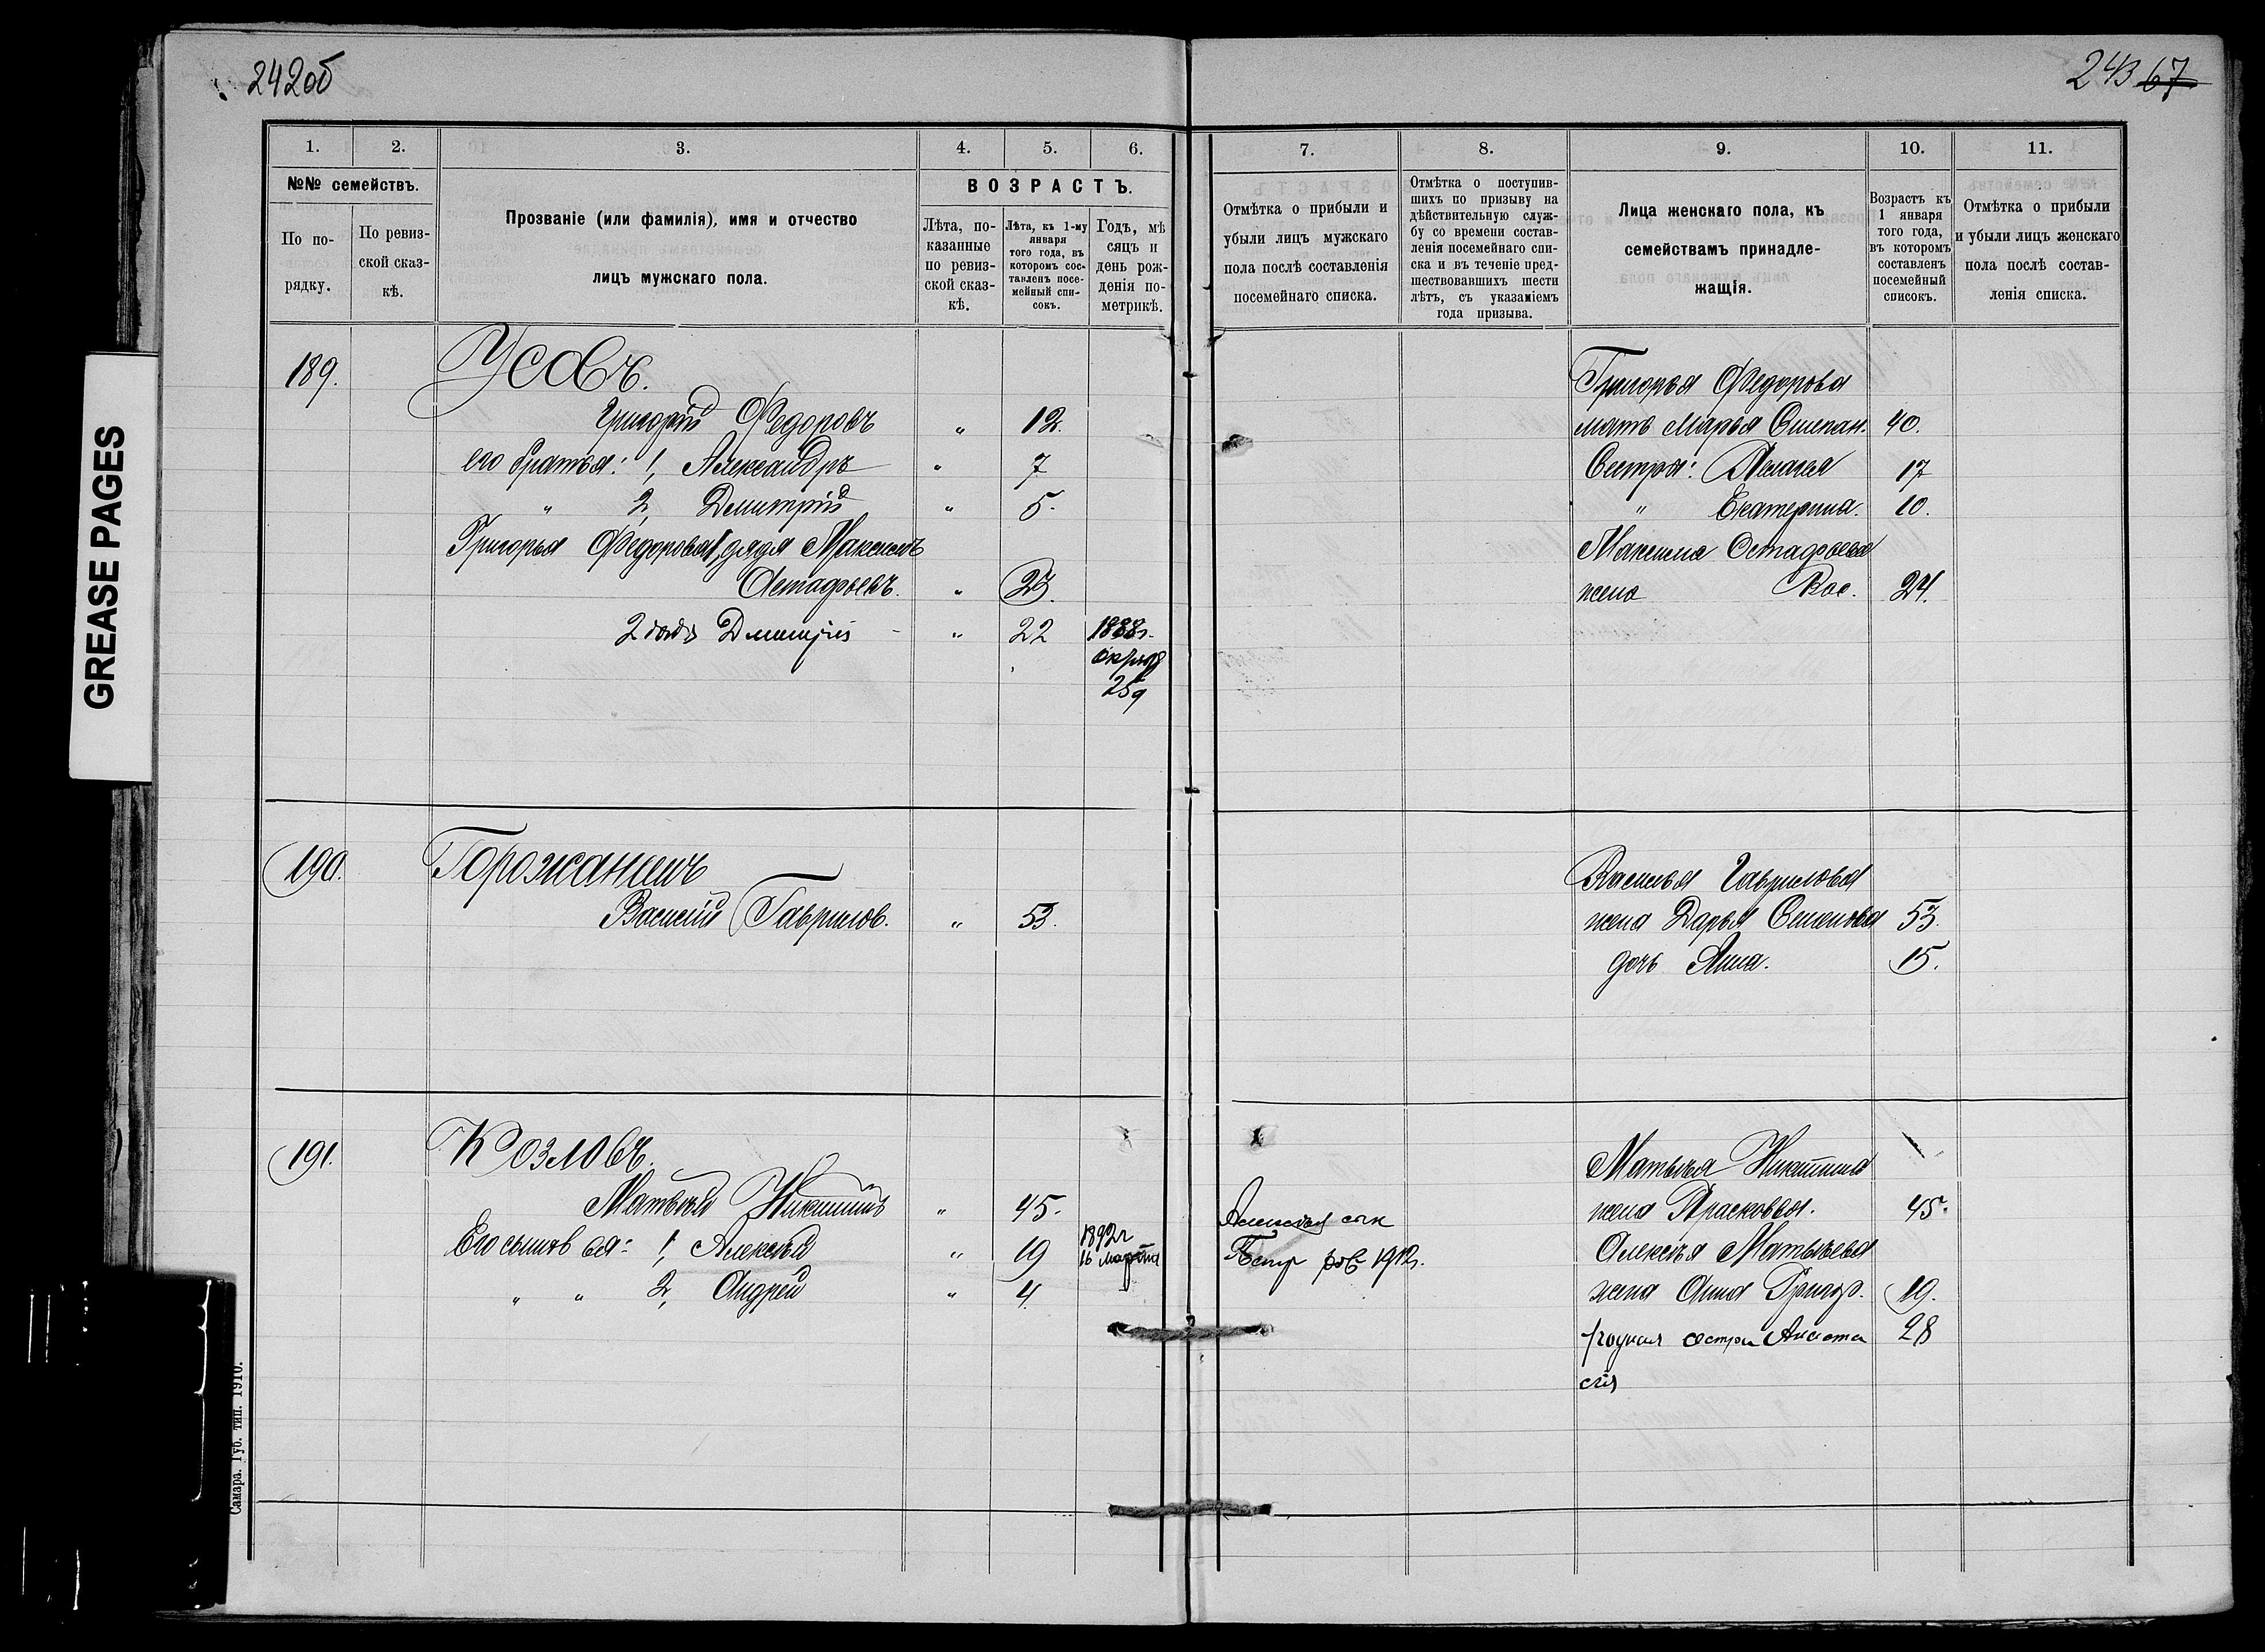 242об
243 67
GREASE PAGES
1. 2. 3. 4. 5. 6.
№№ семействъ.
По по-
рядку.
По ревиз-
ской сказ-
кѣ.
Прозваніе (или фамилія), имя и отчество
лицъ мужскаго пола.
ВОЗРАСТЪ.
Лѣта, по-
казанные
по ревиз-
ской сказ-
кѣ.
Лѣта, къ 1-му
января
того года, въ
которомъ сос-
тавленъ посе-
мейный спи-
сокъ.
Годъ, мѣ
сяцъ и
день рож-
денія по-
метрикѣ.
189.
Усовъ.
Григорій Ѳедоровъ " 12.
его братья: 1, Александръ " 7
" 2, Дмитрій " 5.
Григорья Ѳедорова дядя Максимъ
Астафьевъ. " 23
2 дядя Дмитрій - " 22 1888г.
октяб
25д
190.
Горожанинъ
Василій Гаврилов. " 53.
191.
Козловъ.
Матвѣй Никитинъ " 45.
Его сыновья: 1, Алексѣй " 19 1892г
16 марта
" " 2, Андрей " 4.
Самара. Губ. тип. 1910.
7. 8. 9. 10. 11.
Отмѣтка о прибыли и
убыли лицъ мужскаго
пола послѣ составленія
посемейнаго списка.
Отмѣтка о поступив-
шихъ по призыву на
дѣйствительную служ-
бу со времени состав-
ленія посемейнаго спи-
ска и въ теченіе пред-
шествовавшихъ шести
лѣтъ, съ указаніемъ
года призыва.
Лица женскаго пола, къ
семействамъ принадле-
жащія.
Возрастъ къ
1 января
того года,
въ которомъ
составленъ
посемейный
списокъ.
Отмѣтка о прибыли
и убыли лицъ женскаго
пола послѣ состав-
ленія списка.
Григорья Ѳедорова
мать Марья Степан. 40.
Сестры: Пелагея 17
" Екатерина. 10.
Максима Остафьева
жена 24.
Василья Гаврилова
жена Дарья Семенова 53.
дочь Анна. 15.
Матвѣя Никитина
жена Прасковья. 45.
Алексѣя Матвѣева
жена Анна Григор. 19.
родная сестра Анаста 28
сія
Алексѣя сын
Петр 1912г.